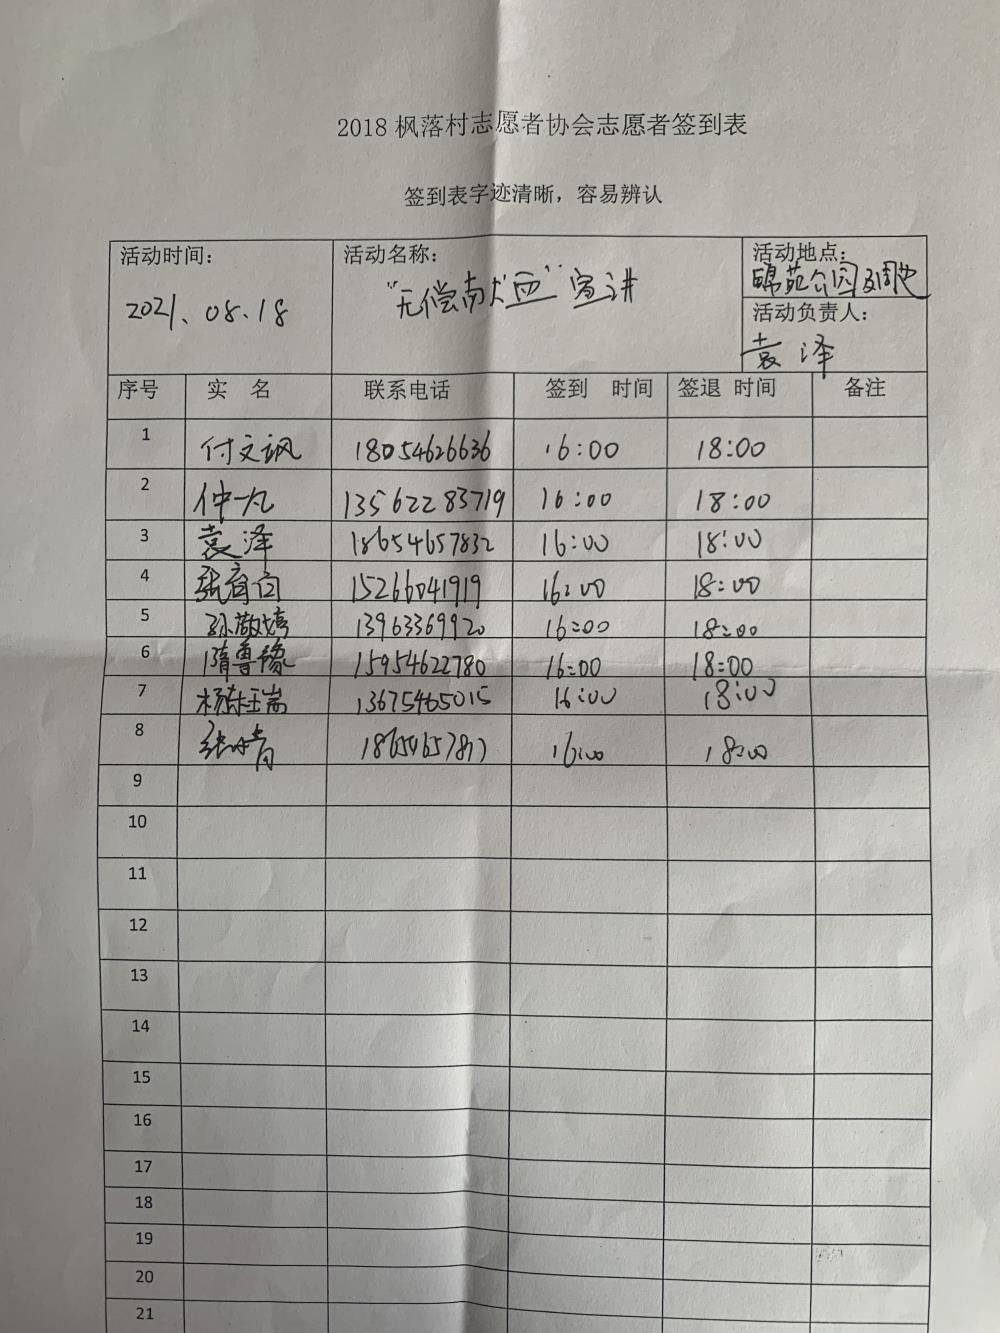 2018 枫落村志愿者协会志愿者签到表
签到表字迹清晰，容易辨认
活动时间： 活动名称： 活动地点：
2021、08、18 锦苑公园及周边
活动负责人：
袁泽
序号 实 名 联系电话 签到 时间 签退 时间 备注
1 付文飒 18054626636 16:00 18:00
2 仲一凡 13562283719 16:00 18:00
3 袁泽 18654657832 16:00 18:00
4 15266041919 16:00 18:00
5 13963369920 16:00 18:00
6 隋鲁豫 15954622780 16:00 18:00
7 杨陈瑞 13675465015 16:00 18:00
8 16:00 18:00
9
10
11
12
13
14
15
16
17
18
19
20
21